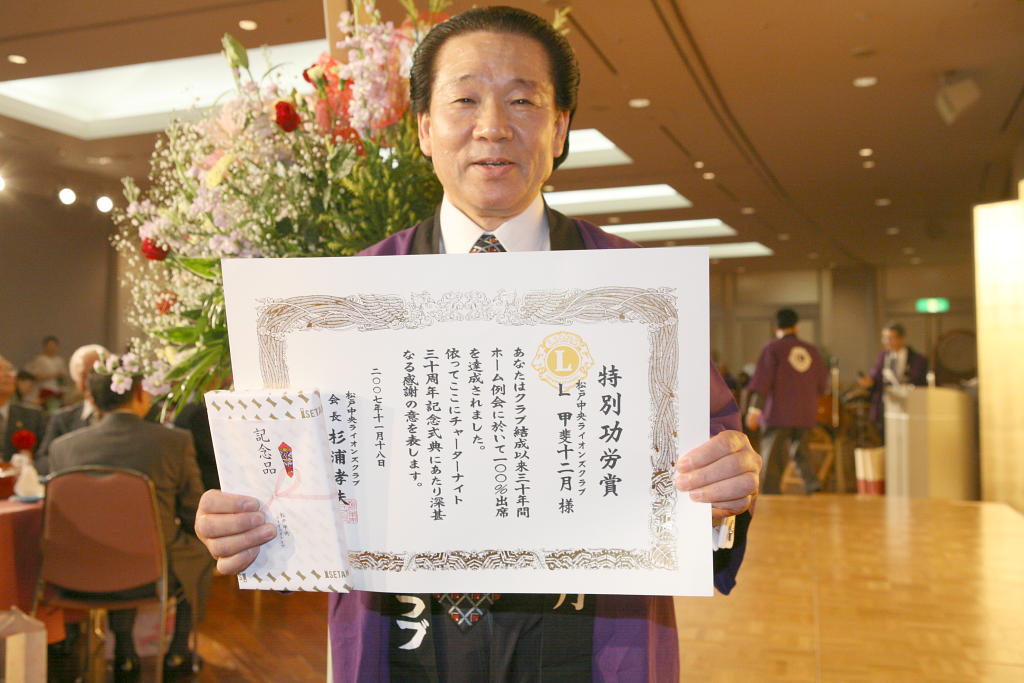 特別功労賞
松戸中央ライオンズクラブ
L 甲斐十二月 様
あなたはクラブ結成以来三十年間
ホーム例会に於いて一〇〇%出席
を達成されました。
依ってここにチャーターナイト
三十周年記念式典にあたり深甚
なる感謝の意を表します。
二〇〇七年十一月十八日
松戸中央ライオンズクラブ
会長 杉浦孝夫
L
ISETAN
記念品
松戸中央
ISETAN
ラブ
月